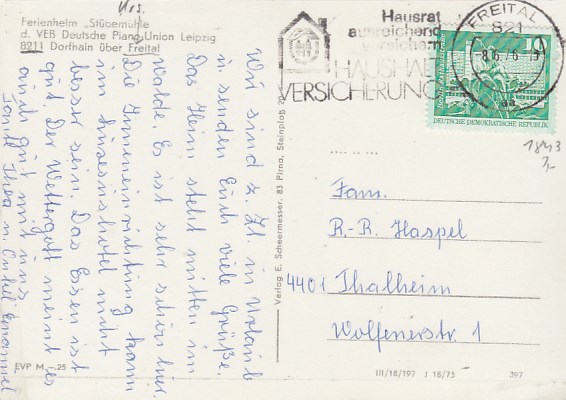 Ferienheim „Stübemühle
d. VEB Deutsche Piano Union Leipzig
8211 Dorfhain über Freital
Wir sind z. Zt. in Urlaub
u. senden Euch viele Grüße.
Das Heim steht mitten im
Walde. Es ist sehr schön hier.
Die Inneneinrichtung kann
im Luxushotel nicht
besser sein. Das Essen ist
gut. Der Wettergott meint es
auch gut mit uns.
Thea u. Onkel Emanuel
EVP M -.25
Verlag E. Scheermesser, 83 Pirna, Steinplatz
Hausrat
ausreichend
versichern
HAUSHALT
VERSICHERUNG
FREITAL
821
10
DEUTSCHE DEMOKRATISCHE REPUBLIK
1843
Fam.
R.-R. Haspel
4401 Thalheim
Wolfenerstr. 1
III/18/197 J 18/73 397